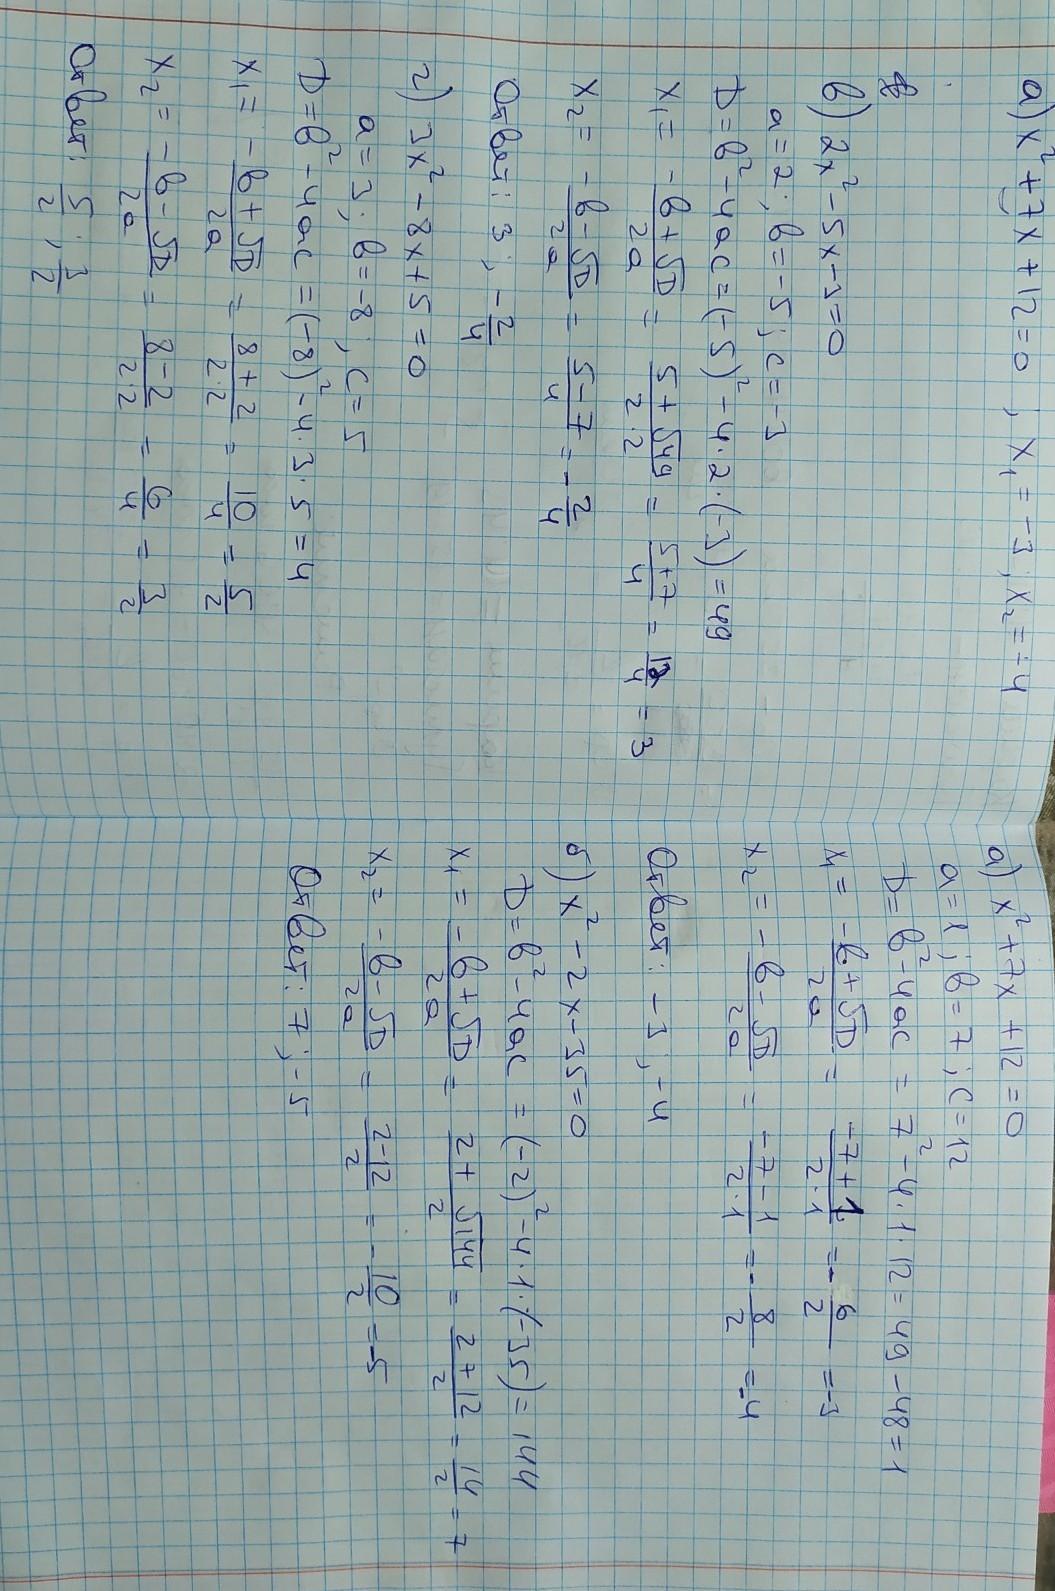 а) x² + 7x + 12 = 0 , x₁ = -3 ; x₂ = -4
в) 2x² - 5x - 3 = 0
a = 2 ; b = -5 ; c = -3
D = b² - 4ac = (-5)² - 4·2·(-3) = 49
x₁ = (-b + √D)/2a = (5 + √49)/(2·2) = (5+7)/4 = 12/4 = 3
x₂ = (-b - √D)/2a = (5-7)/4 = -2/4
Ответ: 3 ; -2/4
г) 3x² - 8x + 5 = 0
a = 3 ; b = -8 ; c = 5
D = b² - 4ac = (-8)² - 4·3·5 = 4
x₁ = (-b + √D)/2a = (8+2)/(2·2) = 10/4 = 5/2
x₂ = (-b - √D)/2a = (8-2)/(2·2) = 6/4 = 3/2
Ответ: 5/2 ; 3/2
а) x² + 7x + 12 = 0
a = 1 ; b = 7 ; c = 12
D = b² - 4ac = 7² - 4·1·12 = 49 - 48 = 1
x₁ = (-b + √D)/2a = (-7+1)/(2·1) = -6/2 = -3
x₂ = (-b - √D)/2a = (-7-1)/(2·1) = -8/2 = -4
Ответ: -3 ; -4
б) x² - 2x - 35 = 0
D = b² - 4ac = (-2)² - 4·1·(-35) = 144
x₁ = (-b + √D)/2a = (2 + √144)/2 = (2+12)/2 = 14/2 = 7
x₂ = (-b - √D)/2a = (2-12)/2 = -10/2 = -5
Ответ: 7 ; -5